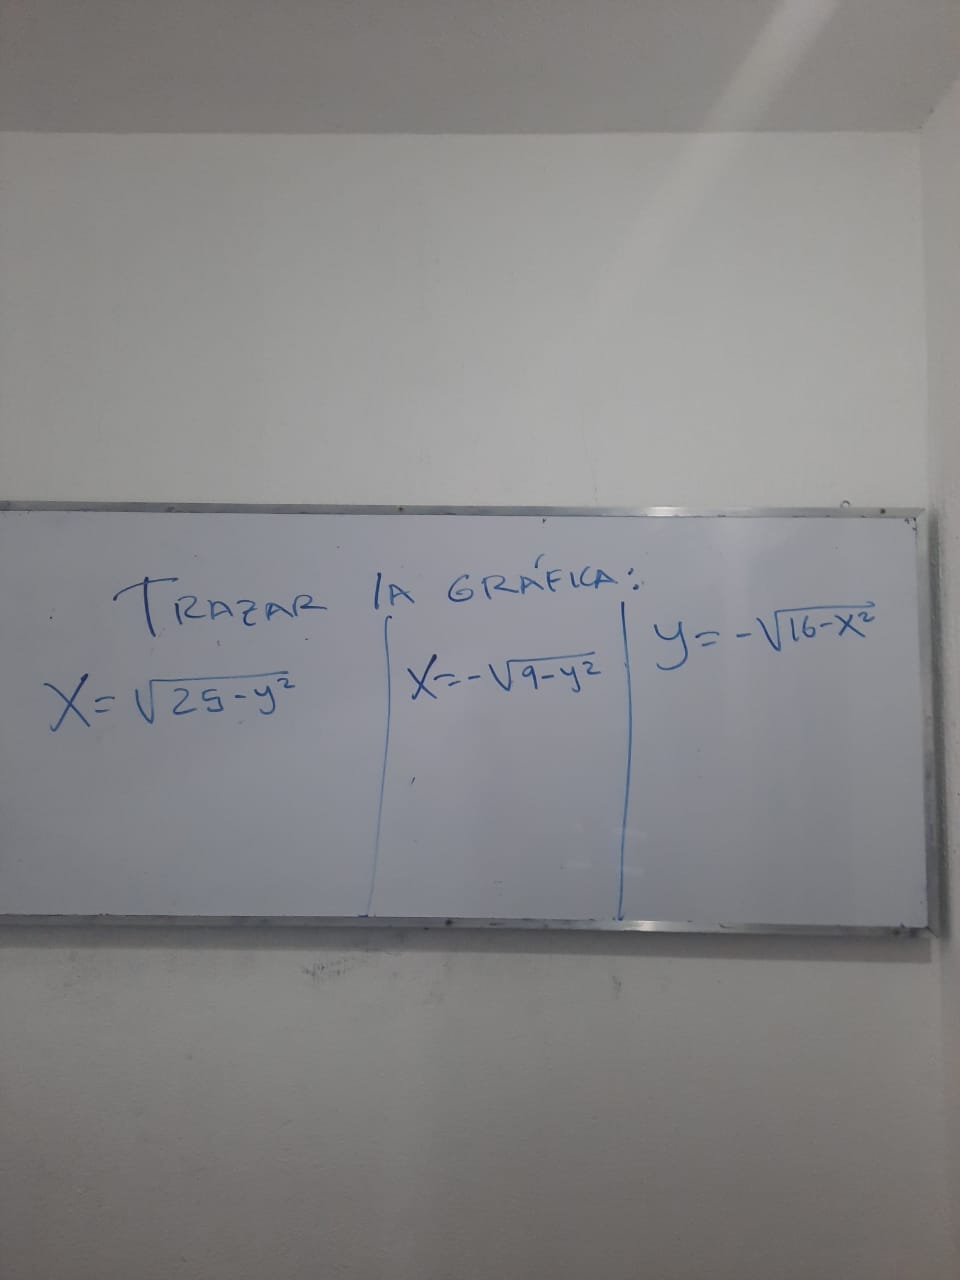 TRAZAR lA GRÁFICA:
X=√25-y²
X=-√9-y²
y=-√16-X²